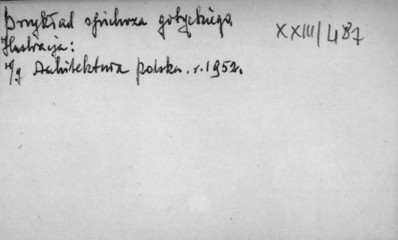 Przykład spichrza gotyckiego.
XXIII/487
Ilustracja:
w/g Architektura polska. r. 1952.